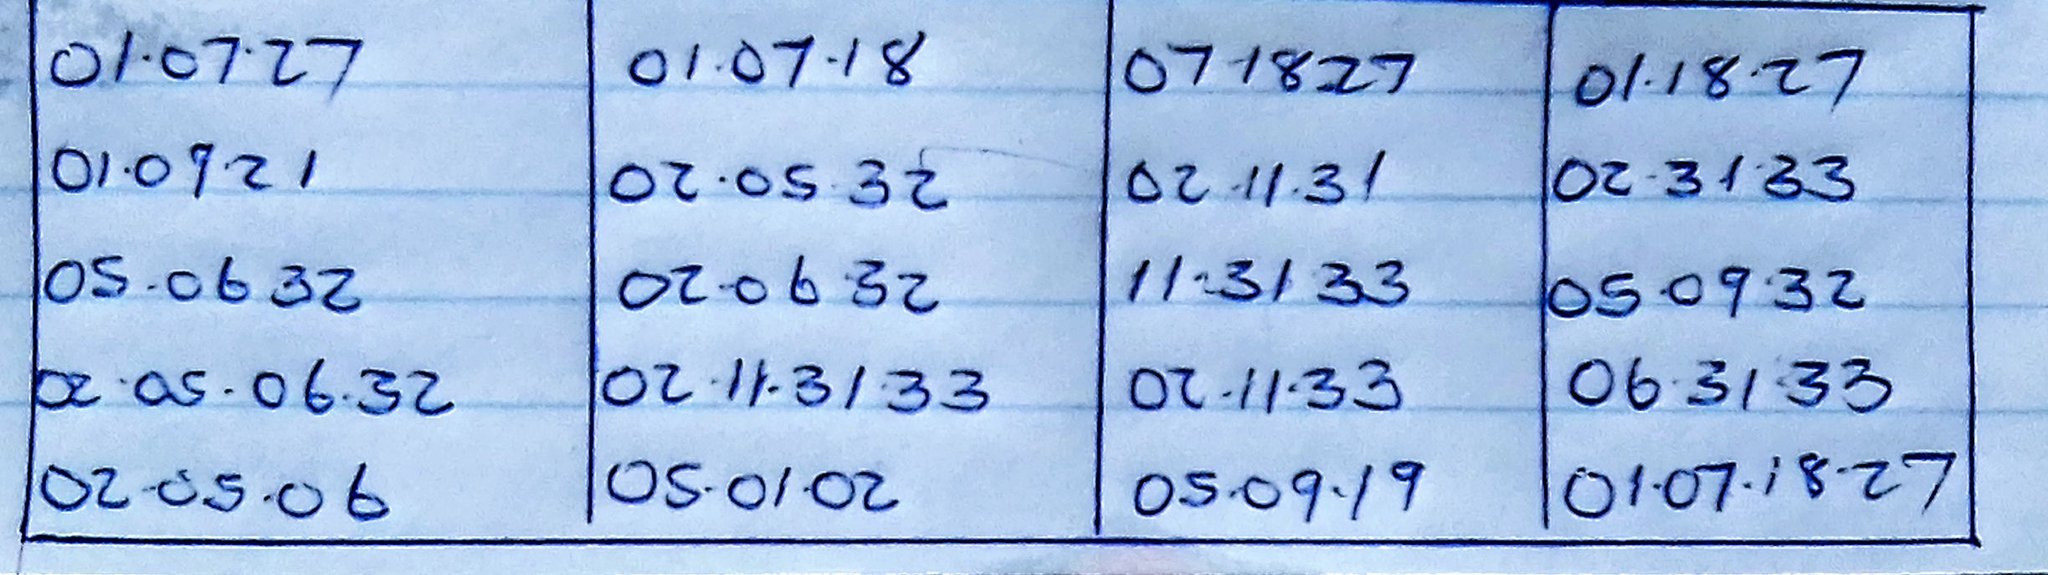 01.07.27 01.07.18 07.18 27 01.18.27
01.09 21 02.05.32 02.11.31 02.31.33
05.06 32 02.06.32 11.31 33 05.09.32
02.05.06.32 02.11.31.33 02.11.33 06 31 33
02.05.06 05.01.02 05.09.19 01.07.18.27